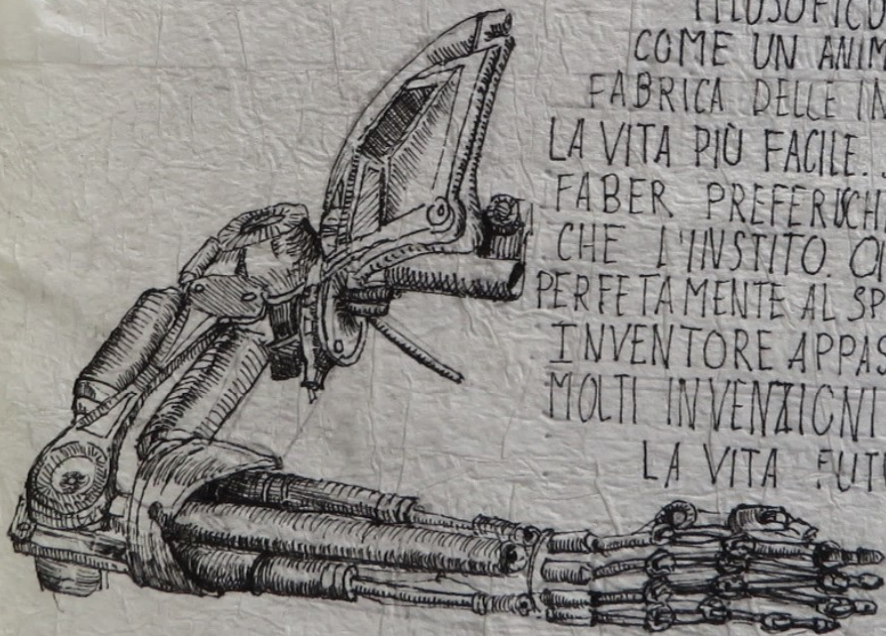 FILOSOFICO
COME UN ANIM
FABRICA DELLE IN
LA VITA PIÙ FACILE..
FABER PREFERISCH
CHE L'INSTITO.
PERFETAMENTE AL SP
INVENTORE APPAS
MOLTI INVENZIONI
LA VITA FUTU